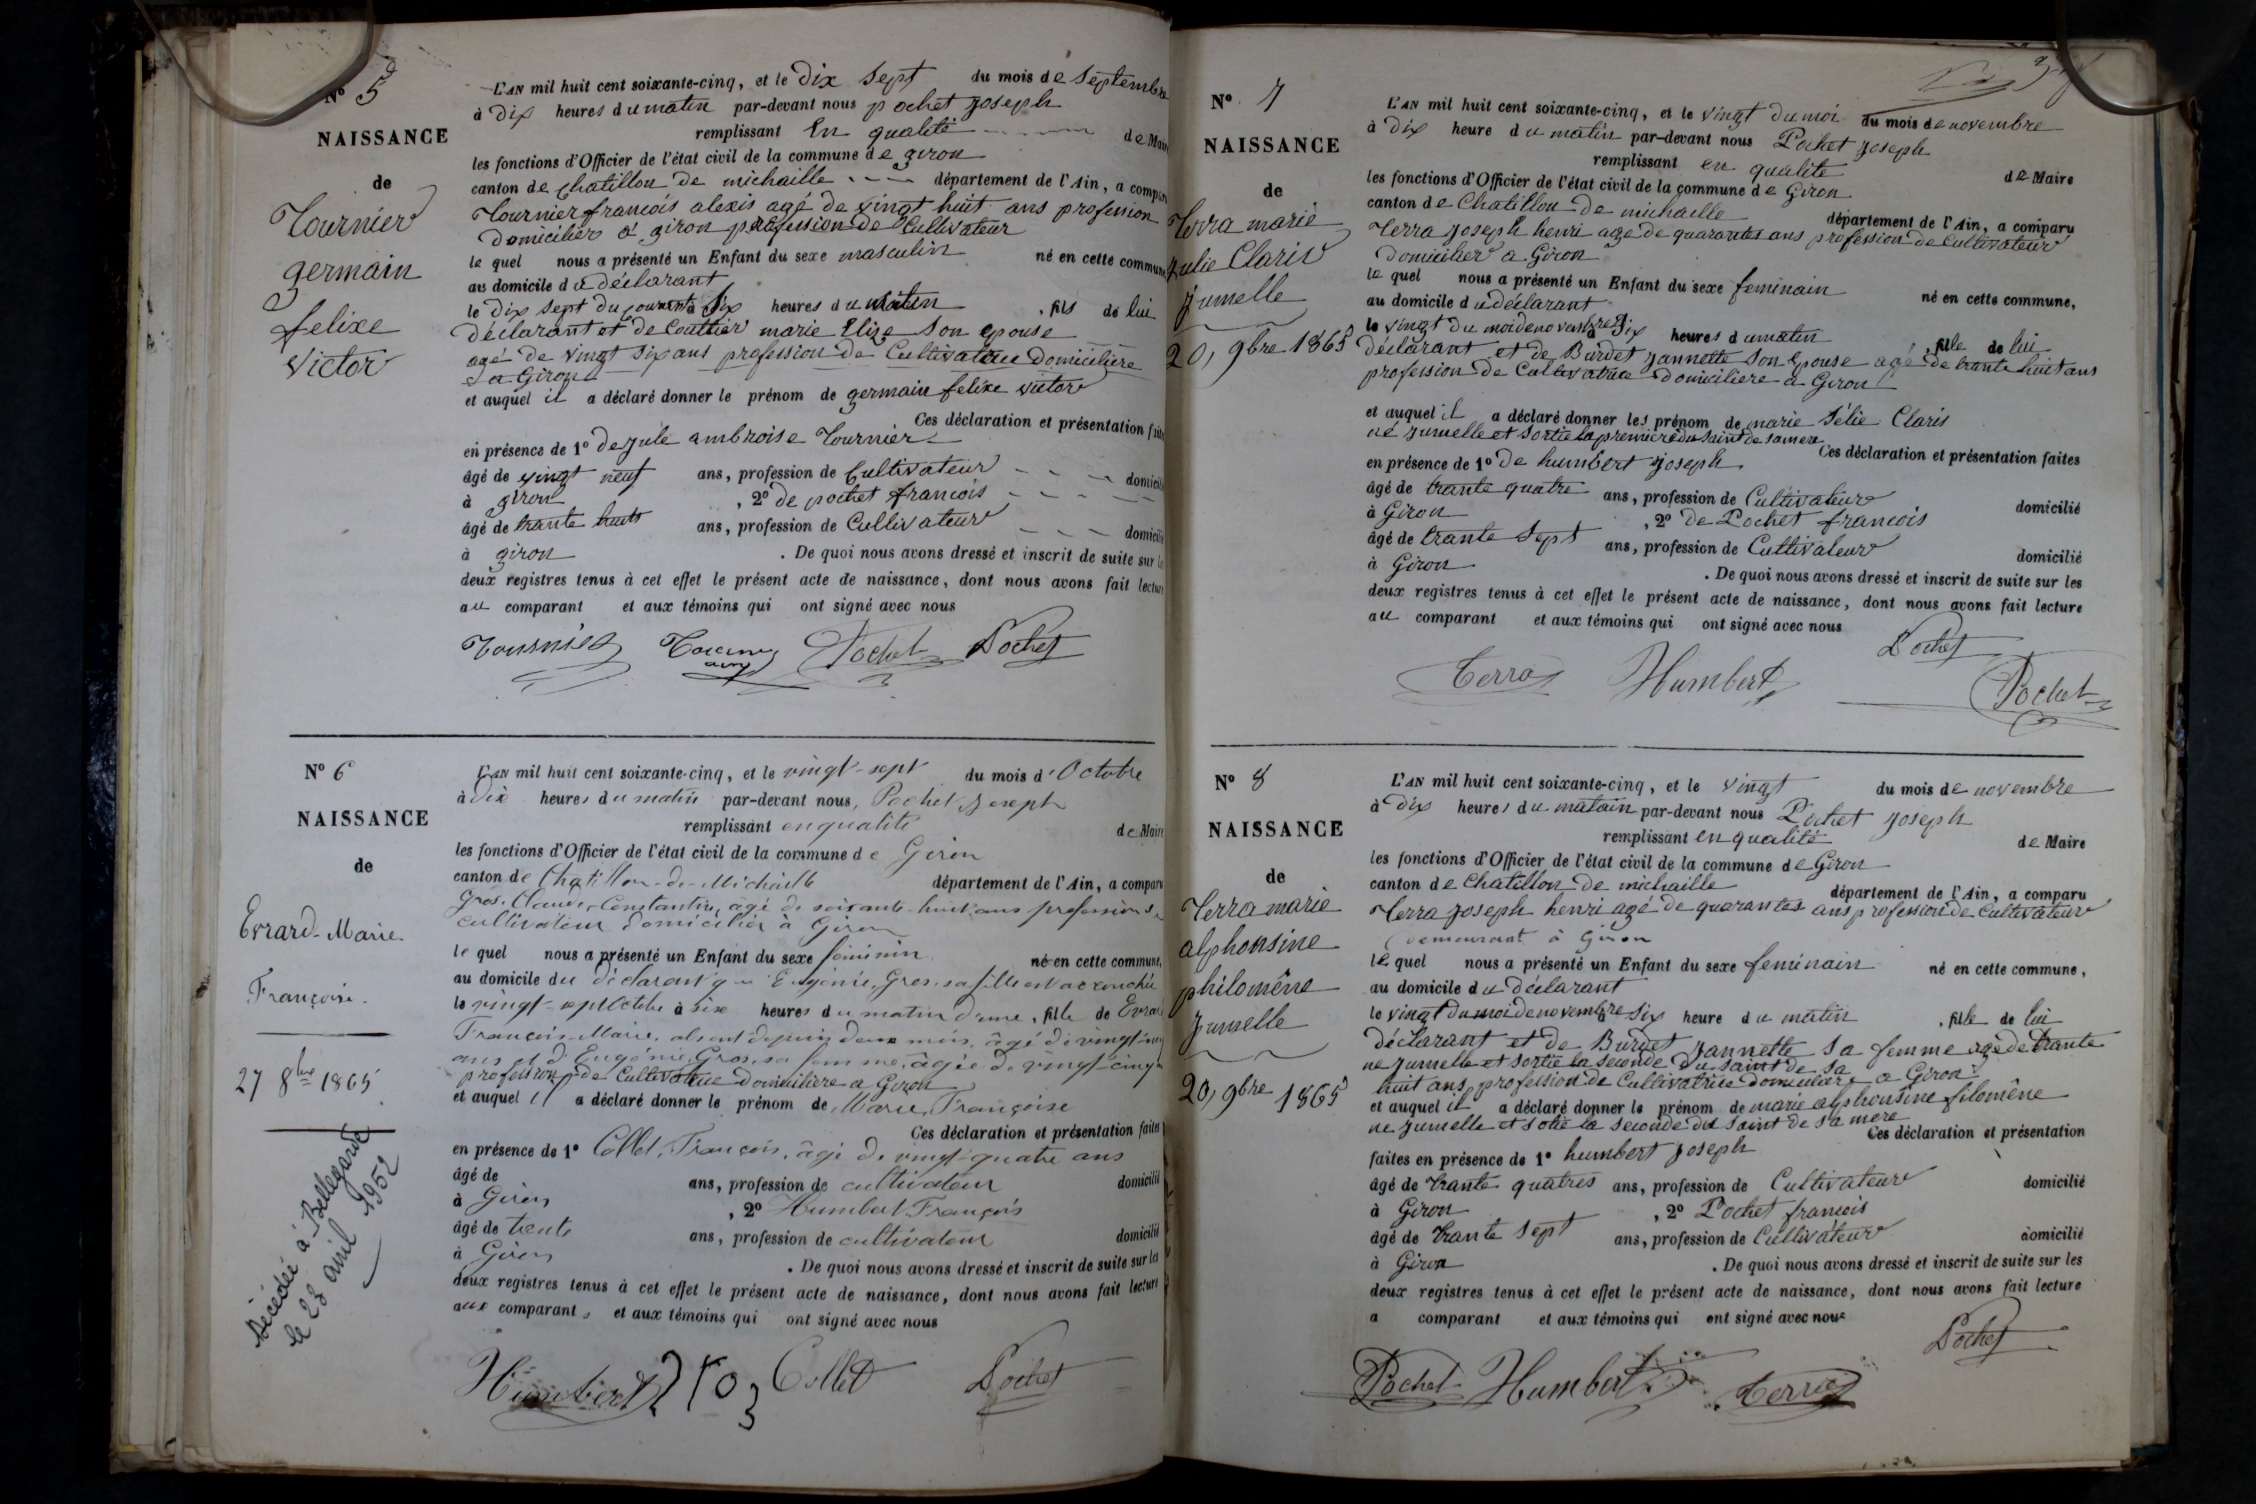 Nº 5
NAISSANCE
de
Tournier
germain
felixe
victor
L'AN mil huit cent soixante-cinq, et le dix sept du mois de septembre
à dix heures du matin par-devant nous pochet joseph
remplissant En qualité de Maire
les fonctions d'Officier de l'état civil de la commune de giron
canton de chatillon de michaille département de l'Ain, a comparu
Tournier francois alexis agé de vingt huit ans profession
domicilier a giron profession de Cultivateur
le quel nous a présenté un Enfant du sexe masculin né en cette commune
au domicile du déclarant
le dix sept du courant a six heures du matin , fils de lui
déclarant et de Couttier marie Elize son epouse
agé de vingt six ans profession de Cultivatrice domicilière
a Giron
et auquel il a déclaré donner le prénom de germain felixe victor
Ces déclaration et présentation faites
en présence de 1º de jule ambroise Tournier
âgé de vingt neuf ans, profession de Cultivateur domicilié
à giron , 2º de pochet francois
âgé de trante huit ans, profession de Cultivateur domicilié
à giron . De quoi nous avons dressé et inscrit de suite sur les
deux registres tenus à cet effet le présent acte de naissance, dont nous avons fait lecture
au comparant et aux témoins qui ont signé avec nous
Tournier Pochet Pochet
Nº 6
NAISSANCE
de
Evrard Marie
Françoise
27 8bre 1865
Décédée à Bellegarde
le 23 avril 1952
L'AN mil huit cent soixante-cinq, et le vingt-sept du mois d'Octobre
à dix heures du matin par-devant nous, Pochet Joseph
remplissant en qualité de Maire
les fonctions d'Officier de l'état civil de la commune de Giron
canton de Chatillon-de-Michaille département de l'Ain, a comparu
Gros, Claude, Constantin, âgé de soixante-huit ans profession
cultivateur domicilier à Giron
le quel nous a présenté un Enfant du sexe féminin né en cette commune,
au domicile du déclarant que Eugénie, Gros, sa fille est accouchée
le vingt-sept Octobre à six heures du matin d'une , fille de Evrard
François-Marie, absent depuis deux mois, âgé de vingt
ans et d'Eugénie, Gros, sa femme, âgée de vingt-cinq
profession de Cultivatrice domicilière a Giron
et auquel il a déclaré donner le prénom de Marie, Françoise
Ces déclaration et présentation faites
en présence de 1º Collet, François, âgé de vingt-quatre ans
âgé de ans, profession de cultivateur domicilié
à Giron , 2º Humbert François
âgé de trente ans, profession de cultivateur domicilié
à Giron . De quoi nous avons dressé et inscrit de suite sur les
deux registres tenus à cet effet le présent acte de naissance, dont nous avons fait lecture
aux comparants et aux témoins qui ont signé avec nous
Humbert Collet Pochet
Nº 7
NAISSANCE
de
Terra marie
julie Claris
jumelle
20, 9bre 1865
L'AN mil huit cent soixante-cinq, et le vingt du moi du mois de novembre
à dix heure du matin par-devant nous Pochet joseph
remplissant en qualité de Maire
les fonctions d'Officier de l'état civil de la commune de Giron
canton de Chatillon de michaille département de l'Ain, a comparu
Terra joseph henri agé de quarantes ans profession de Cultivateur
domicilier a Giron
le quel nous a présenté un Enfant du sexe feminain né en cette commune,
au domicile du déclarant
le vingt du moi de novembre a six heures du matin , fille de lui
déclarant et de Burdet jannette son Epouse agé de trante huit ans
profession de Cultivatrice domiciliere a Giron
et auquel il a déclaré donner les prénom de marie Sélie Claris
né jumelle et sortie la premiere du saint de sa mere
Ces déclaration et présentation faites
en présence de 1º de humbert joseph
âgé de trante quatre ans, profession de Cultivateur domicilié
à Giron , 2º de Pochet francois
âgé de trante sept ans, profession de Cultivateur domicilié
à Giron . De quoi nous avons dressé et inscrit de suite sur les
deux registres tenus à cet effet le présent acte de naissance, dont nous avons fait lecture
au comparant et aux témoins qui ont signé avec nous
Pochet
Terra Humbert Pochet
Nº 8
NAISSANCE
de
Terra marie
alphonsine
philomêne
jumelle
20, 9bre 1865
L'AN mil huit cent soixante-cinq, et le vingt du mois de novembre
à dix heures du matain par-devant nous Pochet joseph
remplissant en qualité de Maire
les fonctions d'Officier de l'état civil de la commune de Giron
canton de Chatillon de michaille département de l'Ain, a comparu
Terra joseph henri agé de quarantes ans profession de Cultivateur
demeurant à Giron
le quel nous a présenté un Enfant du sexe feminain né en cette commune,
au domicile du déclarant
le vingt du moi de novembre a six heure du matin , fille de lui
déclarant et de Burdet jannette sa femme agé de trante
ne jumelle et sortie la seconde du saint de sa
huit ans profession de Cultivatrice domiciliere a Giron
et auquel il a déclaré donner le prénom de marie alphonsine filomêne
ne jumelle et sotie la seconde du saint de sa mere
Ces déclaration et présentation
faites en présence de 1º humbert joseph
âgé de trante quatres ans, profession de Cultivateur domicilié
à Giron , 2º Pochet francois
âgé de trante sept ans, profession de Cultivateur domicilié
à Giron . De quoi nous avons dressé et inscrit de suite sur les
deux registres tenus à cet effet le présent acte de naissance, dont nous avons fait lecture
a comparant et aux témoins qui ont signé avec nous
Pochet
Pochet Humbert Terra